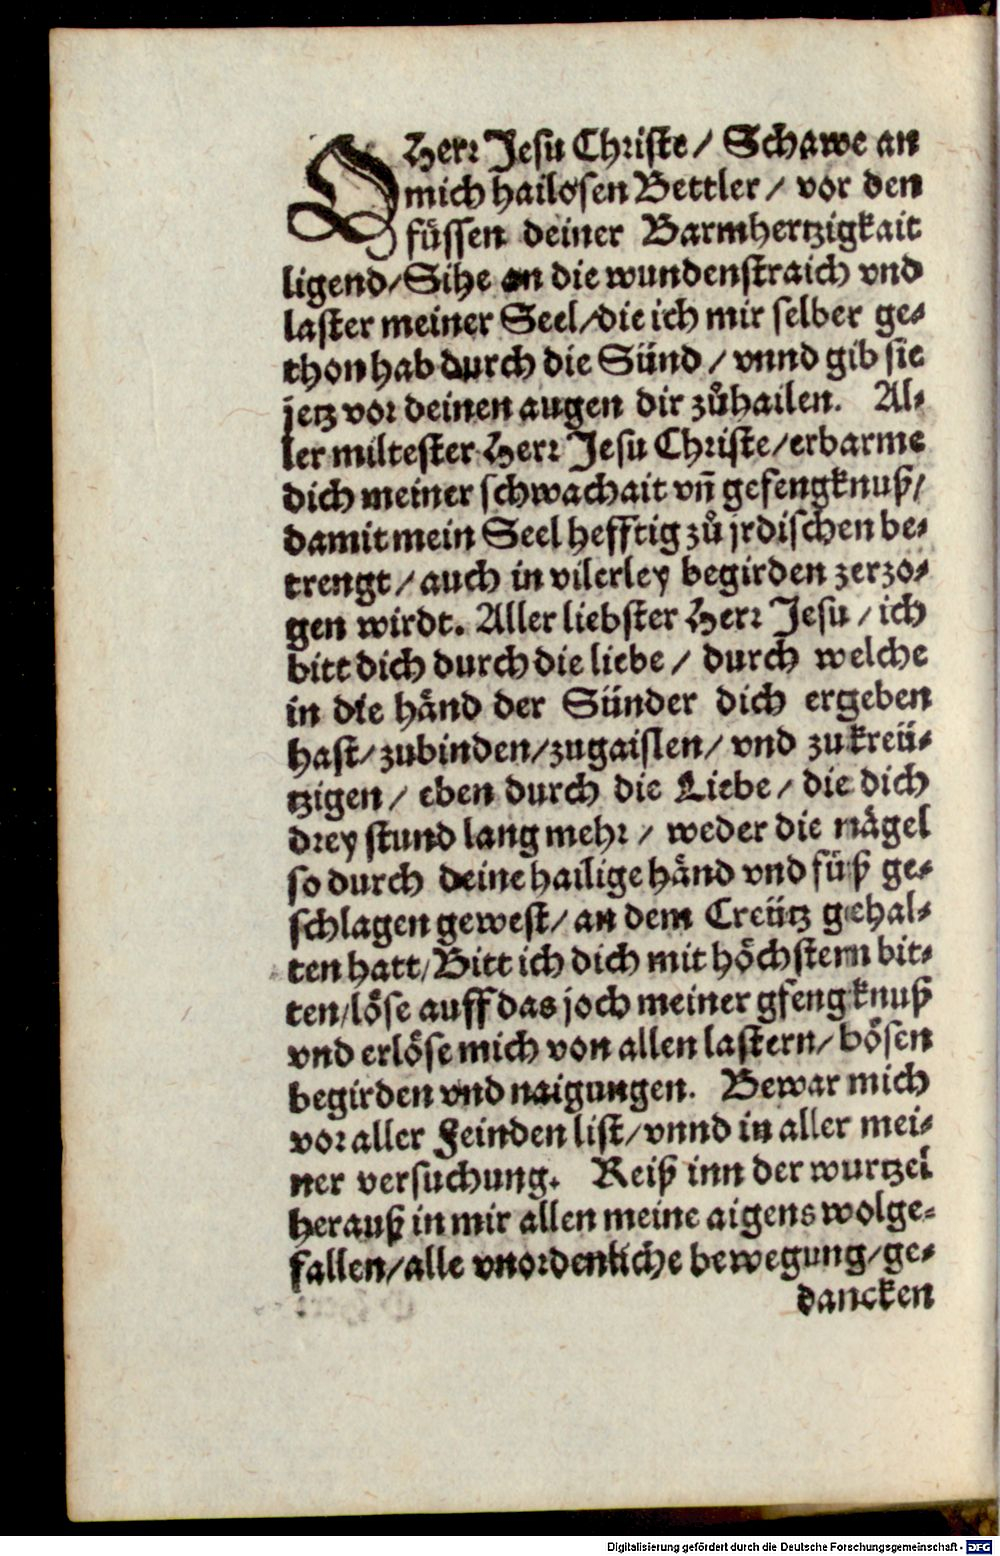 O Herr Jesu Christe / Schawe an
mich hailosen Bettler / vor den
füssen deiner Barmhertzigkait
ligend / Sihe an die wundenstraich vnd
laster meiner Seel / die ich mir selber ge⸗
thon hab durch die Sünd / vnnd gib sie
jetz vor deinen augen dir zůhailen. Al⸗
ler miltester Herr Jesu Christe / erbarme
dich meiner schwachait vñ gefengknuß /
damit mein Seel hefftig zů jrdischen be⸗
trengt / auch in vilerley begirden zerzo⸗
gen wirdt. Aller liebster Herr Jesu / ich
bitt dich durch die liebe / durch welche
in die händ der Sünder dich ergeben
hast / zubinden / zugaislen / vnd zu kreü⸗
tzigen / eben durch die Liebe / die dich
drey stund lang mehr / weder die nägel
so durch deine hailige händ vnd füß ge⸗
schlagen gewest / an dem Creütz gehal⸗
ten hatt / Bitt ich dich mit höchstem bit⸗
ten / löse auff das joch meiner gfengknuß
vnd erlöse mich von allen lastern / bösen
begirden vnd naigungen. Bewar mich
vor aller Feinden list / vnnd in aller mei⸗
ner versuchung. Reiß inn der wurtzel
herauß in mir allen meine aigens wolge⸗
fallen / alle vnordenliche bewegung / ge⸗
dancken
Digitalisierung gefördert durch die Deutsche Forschungsgemeinschaft - DFG